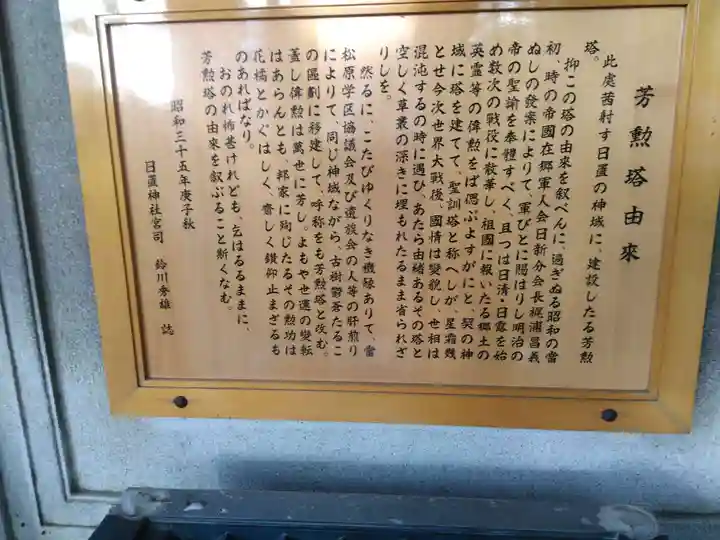 芳勲塔由來
此處茜射す日置の神域に、建設したる芳勲
塔。
抑この塔の由來を叙べんに、過ぎぬる昭和の當
初、時の帝國在郷軍人会日新分会長梶浦昌義
ぬしの發案によりて、軍びとに賜はりし明治の
帝の聖諭を奉體すべく、且つは日清・日露を始
め数次の戦役に散華し、祖國に報いたる郷土の
英霊等の偉勲をば偲ぶよすがにと、契の神
域に塔を建てて、聖訓塔と称へしが、星霜幾
とせ今次世界大戰後、國情は變貌し、世相は
混沌するの時に遇ひ、あたら由緒あるその塔と
空しく草叢の深きに埋もれたるまま省られざ
りしを。
然るに、こたびゆくりなき機縁ありて、當
松原学区協議会及び遺族会の人等の肝煎り
によりて、同じ神域ながら、古樹鬱蒼たるこ
の區劃に移建して、呼称をも芳勲塔と改む。
蓋し偉勲は萬世に芳し。よもや世運の變転
はあらんとも、邦家に殉じたるその勲功は
花橘とかぐはしく、齋しく鑚仰止まざるも
のあればなり。
おのれ怖甚けれども、乞はるるままに、
芳勲塔の由來を叙ぶること斯くなむ。
昭和三十五年庚子秋
日置神社宮司 鈴川秀雄 誌